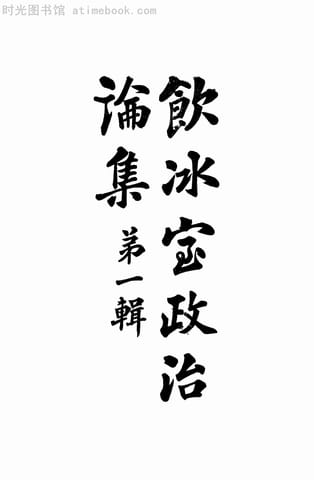 时光图书馆 atimebook.com
飲冰室政治
論集 第一輯